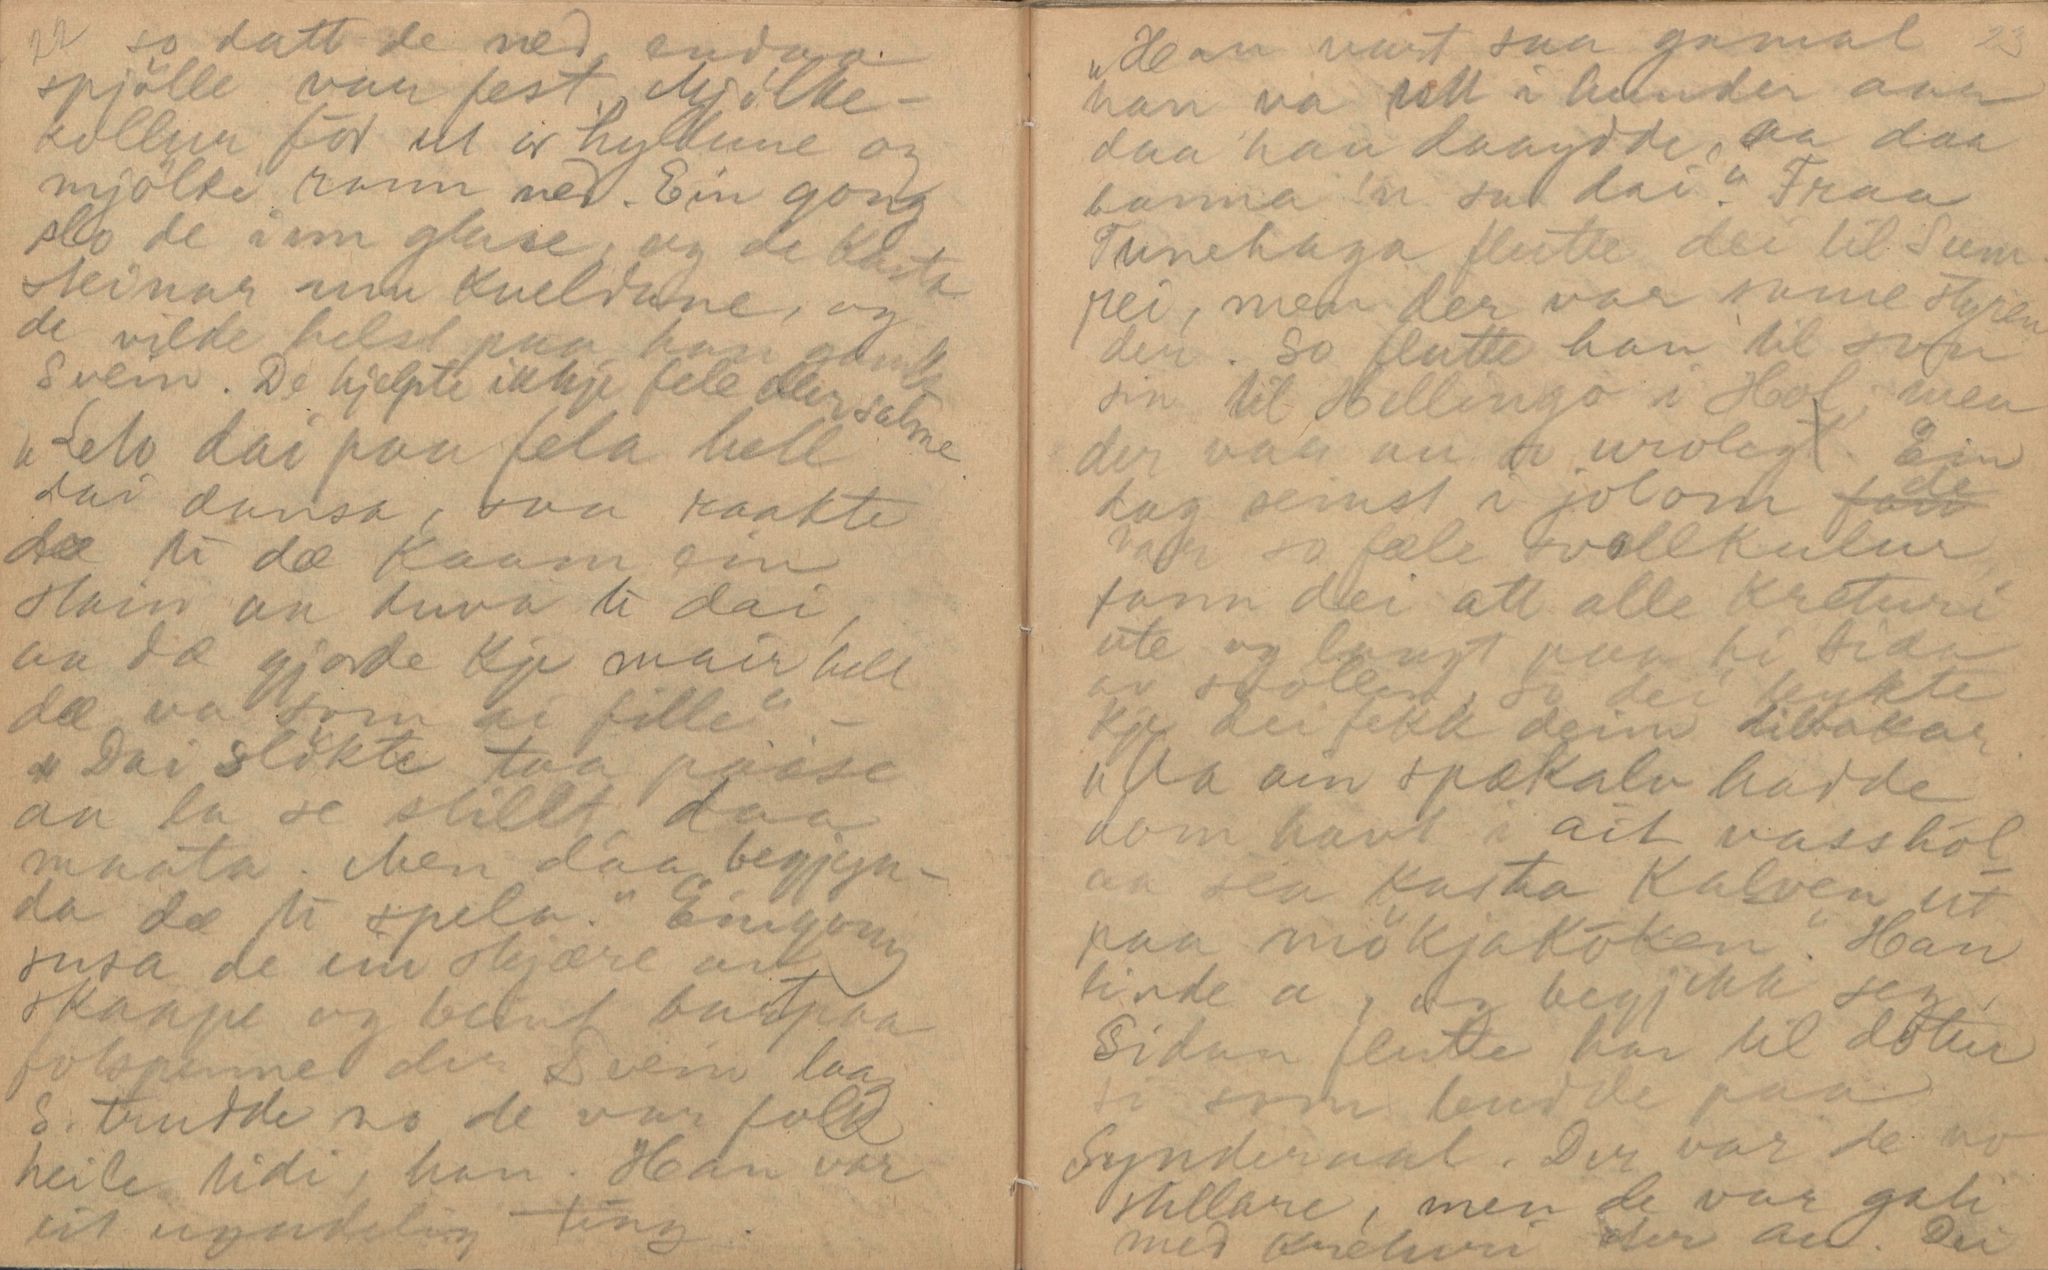 22
so datt de ned, endaa
spjölle var fest. Mjölke-
kollur for ut or hyllune og
mjölki rann ned. Ein gong
slo de inn glase, og de kasta
steinar um kveldane, og
de vilde helst paa han gamle
Svein. De hjelpte ikkje fele eller salme
"Leto dai paa fela hell
dai dansa, saa raakte
dæ ti dæ kaam ein
stain aa duva ti dai,
aa dæ gjorde kje mair hell
dæ va som ai fille" –
"Dai slökte taa paase
aa la se stillt daa
maata. Men daa begjyn-
da dæ ti spela." Eingong
susa de ein skjære av
skaape og beint burtpaa
fotspunne der Svein laag
S. trudde no de var folk
heile tidi, han. Han var
eit ugudeleg ting.
23
"Han vart saa gamal
han va rett i hundre aar
daa han daaydde, aa daa
banna 'n saa dai." Fraa
Tunehaga flutte dei til Sum-
rei, men der var same styren
der. So flutte han til son
sin til Hellingo i Hol, men
der var au so uroleg. Ein
dag seinst i jolom de
var so fæle svellkulur,
fann dei att alle kreturi
ute og langt paa hi sida
av svollen, so dei tenkte
kje dei fekk deim tilbakar.
"Aa ain spækalv hadde
dom havt i ait vasshól
aa sea kasta kalven ut
paa mökjaköken." Han
livde a, og begjekk seg.
Sidan flutte han til dotur
si som budde paa
Synderaal. Der var de no
stillare, men de var gali
med kreturi der au. Dei